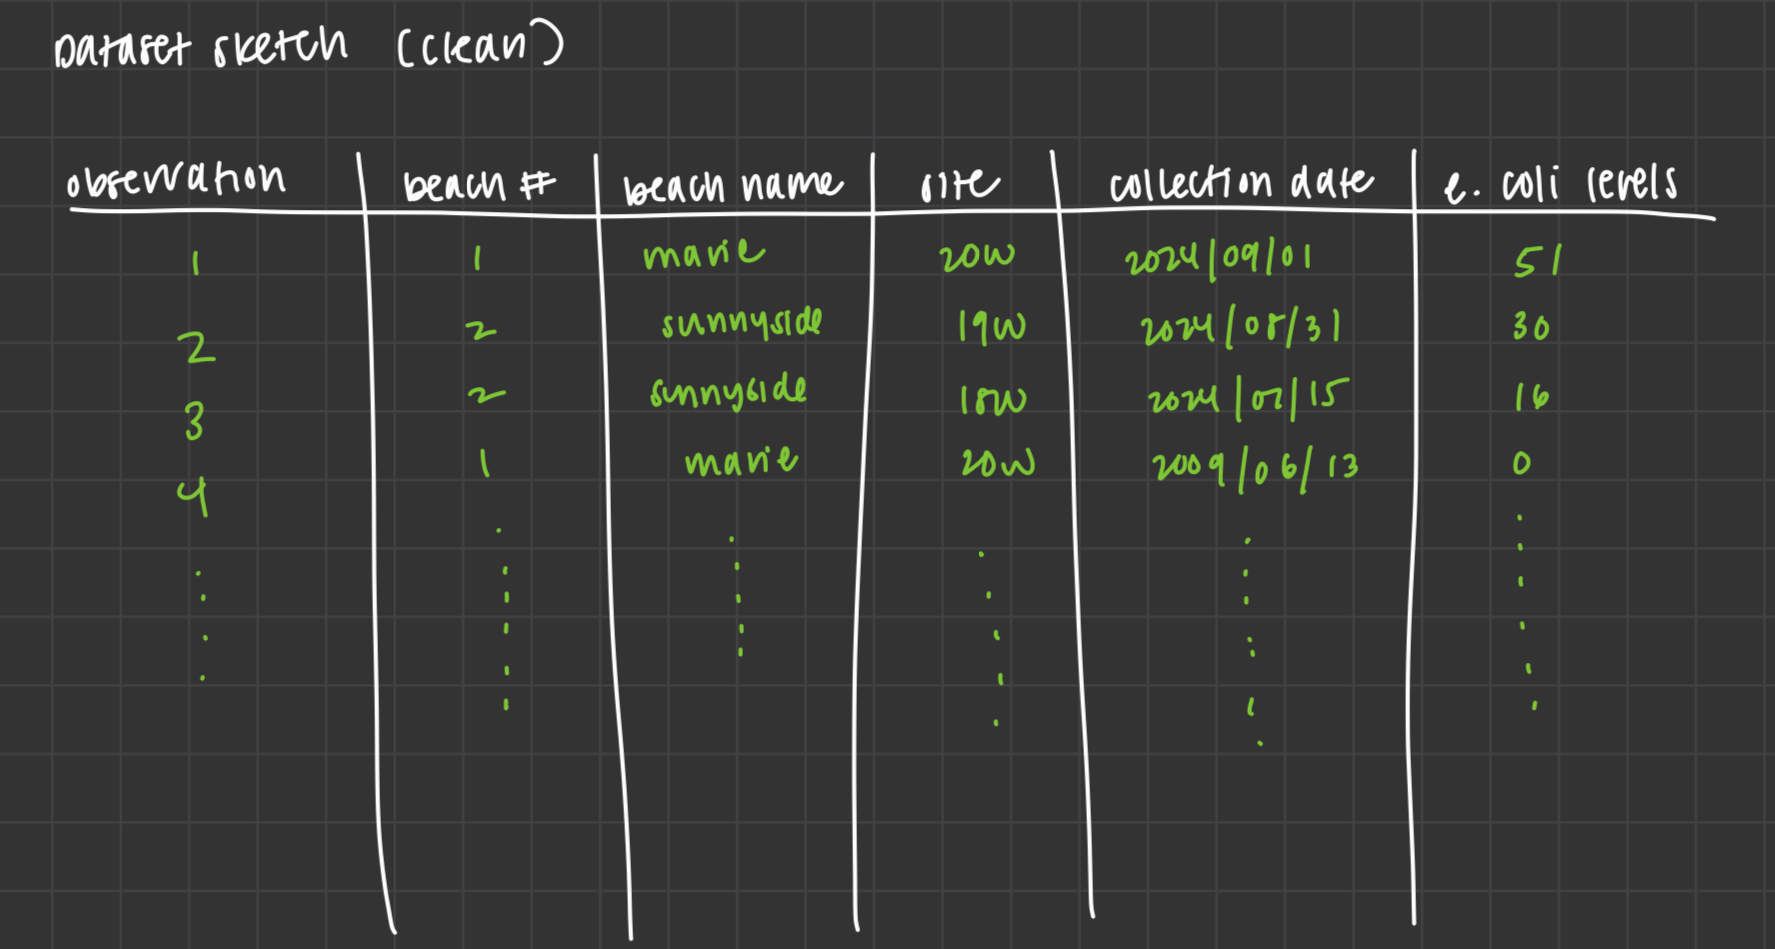 Dataset sketch (clean)
observation beach # beach name site collection date e. coli levels
1 1 marie 20W 2024/09/01 51
2 2 sunnyside 19W 2024/08/31 30
3 2 sunnyside 18W 2024/07/15 16
4 1 marie 20W 2009/06/13 0